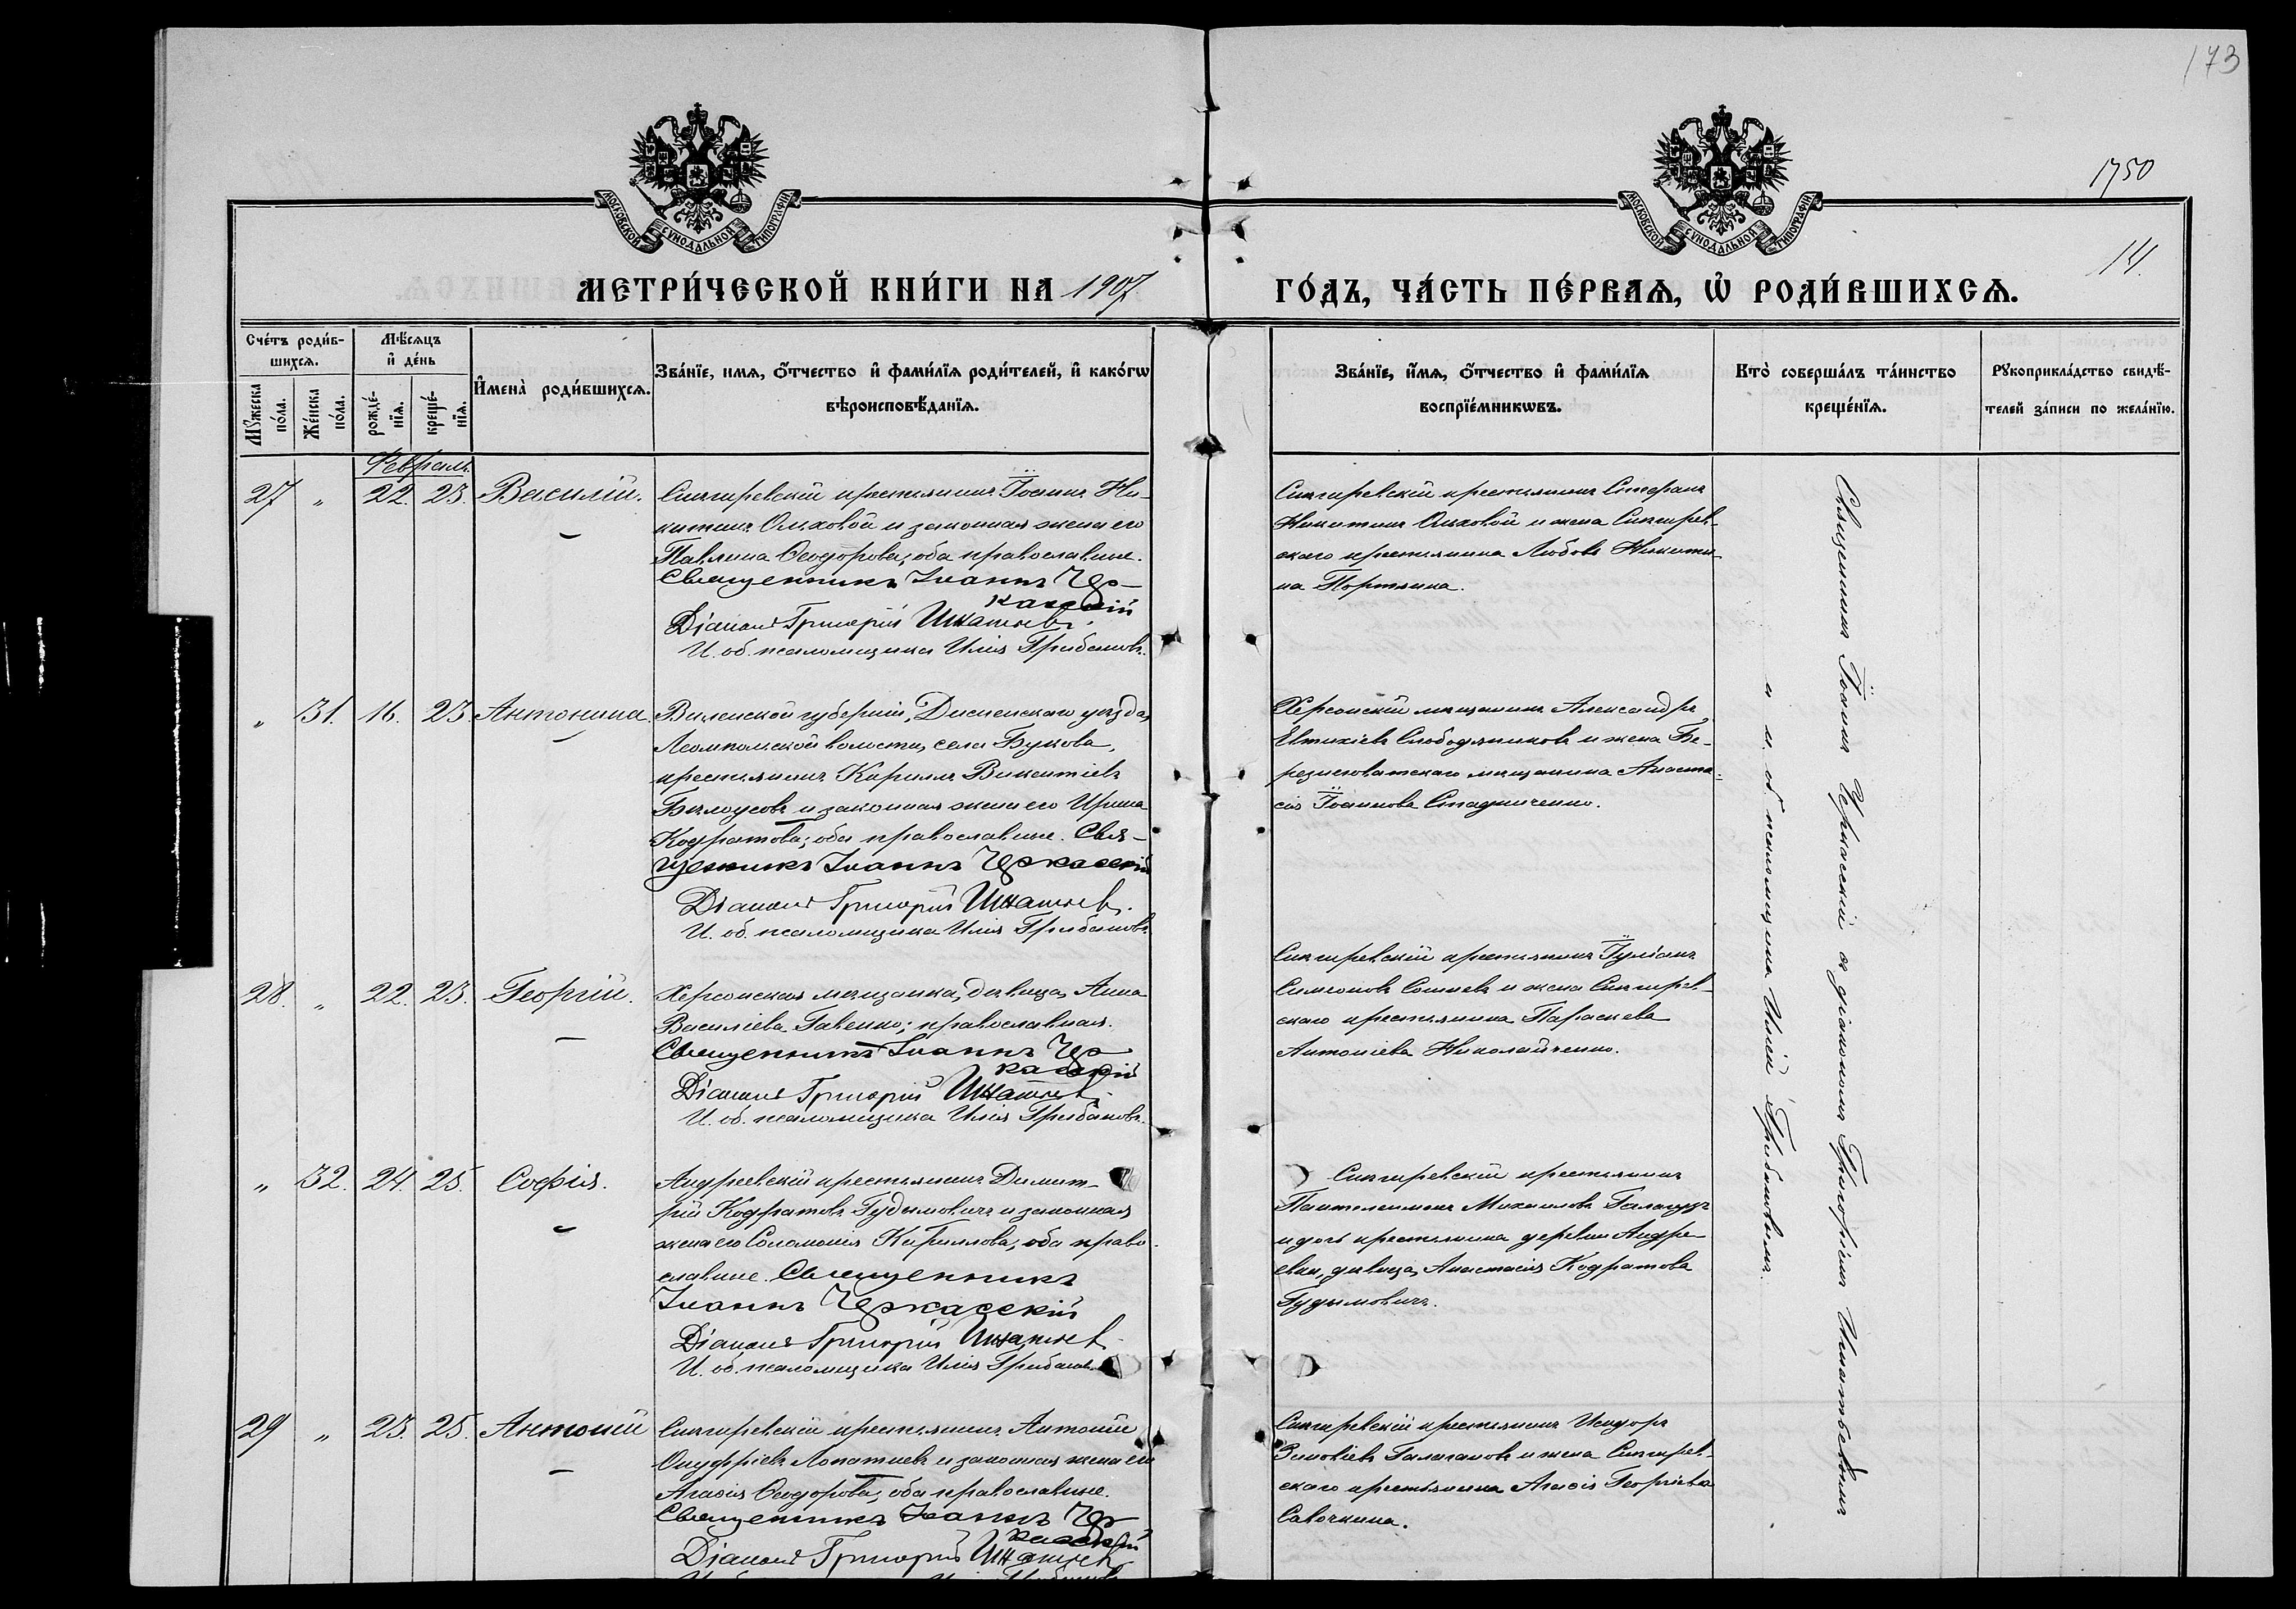 173
1750
14.
МОСКОВСКОЙ СѴНОДАЛЬНОЙ ТИПОГРАФІИ
МОСКОВСКОЙ СѴНОДАЛЬНОЙ ТИПОГРАФІИ
МЕТРИ́ЧЕСКОЙ КНИ́ГИ НА 1907 ГО́ДЪ, ЧА́СТЬ ПЕ́РВАѦ, Ѡ҆ РОДИ́ВШИХСѦ.
Сче́тъ роди́в-
шихсѧ.
Мꙋ́жеска по́ла.
Же́нска по́ла.
Мѣ́сѧцъ
и҆ де́нь
рожде́-
нїѧ.
креще́-
нїѧ.
И҆мена̀ роди́вшихсѧ.
Зва́нїе, имѧ, ѻ҆́тчество и҆ фами́лїѧ роди́телей, и҆ како́гѡ
вѣроисповѣ́данїѧ.
Зва́нїе, и҆́мѧ, ѻ҆́тчество и҆ фами́лїѧ
воспрїе́мникѡвъ.
Кто̀ соверша́лъ та́инство
креще́нїѧ.
Рꙋкоприкла́дство свидѣ́-
телей за́писи по жела́нїю.
Февраль
27 „ 22. 23. Василій.
Снигиревскій крестьянинъ Іоаннъ Ни-
китинъ Ольховой и законная жена его
Павлина Ѳеодорова; оба православные.
Священникъ Іоаннъ Чер-
касскій
Діаконъ Григорій Игнатьевъ.
И. об. псаломщика Илія Грибановъ.
Снигиревскій крестьянинъ Стефанъ
Никитинъ Ольховой и жена Снигирев-
скаго крестьянина Любовь Никити-
на Портянка.
„ 31. 16. 23. Антонина.
Виленской губерніи, Дисненскаго уѣзда,
Леонпольской волости, села Букова,
крестьянинъ Кириллъ Викентіевъ
Бѣлоусовъ и законная жена его Ирина
Кодратова; оба православные. Свя-
щенникъ Іоаннъ Черкасскій
Діаконъ Григорій Игнатьевъ.
И. об. псаломщика Илія Грибановъ.
Херсонскій мѣщанинъ Александръ
Евтихіевъ Слободяниковъ и жена Бе-
резнеговатскаго мѣщанина Анаста-
сія Іоаннова Стадниченко.
28. „ 22. 23. Георгій.
Херсонская мѣщанка, дѣвица, Анна
Василіева Гавенко; православная.
Священникъ Іоаннъ Чер
касскій
Діаконъ Григорій Игнатьевъ.
И. об. псаломщика Илія Грибановъ.
Снигиревскій крестьянинъ Іуліанъ
Симеоновъ Сошневъ и жена Снигирев-
скаго крестьянина Параскева
Антоніева Николайченко.
„ 32. 24. 25. Софія.
Андреевскій крестьянинъ Димит-
рій Кодратовъ Гудымовичъ и законная
жена его Соломонія Кириллова; оба право-
славные. Священникъ
Іоаннъ Черкасскій
Діаконъ Григорій Игнатьев
И. об. псаломщика Илія Грибановъ
Снигиревскій крестьянинъ
Пантелеимонъ Михаиловъ
и дочь крестьянина деревни Андре-
евки, дѣвица, Анастасія Кодратова
Гудымовичъ.
29 „ 23. 25. Антоній
Снигиревскій крестьянинъ Антоній
Онуфріевъ Лопатневъ и законная жена его
Агаѳія Ѳеодорова; оба православные.
Священникъ Іоаннъ Чер
касскій
Діаконъ Григорій Игнатьевъ
Снигиревскій крестьянинъ Исидоръ
Зиновіевъ Галагановъ и жена Снигирев-
скаго крестьянина Агаѳія Георгіева
Савочкина.
Священникъ Іоаннъ Черкасскій съ діакономъ Григоріемъ Игнатьевымъ
и и. об. псаломщика Иліей Грибановымъ.